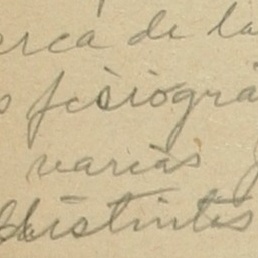 erca de la
s fisiográ
varias
distintas